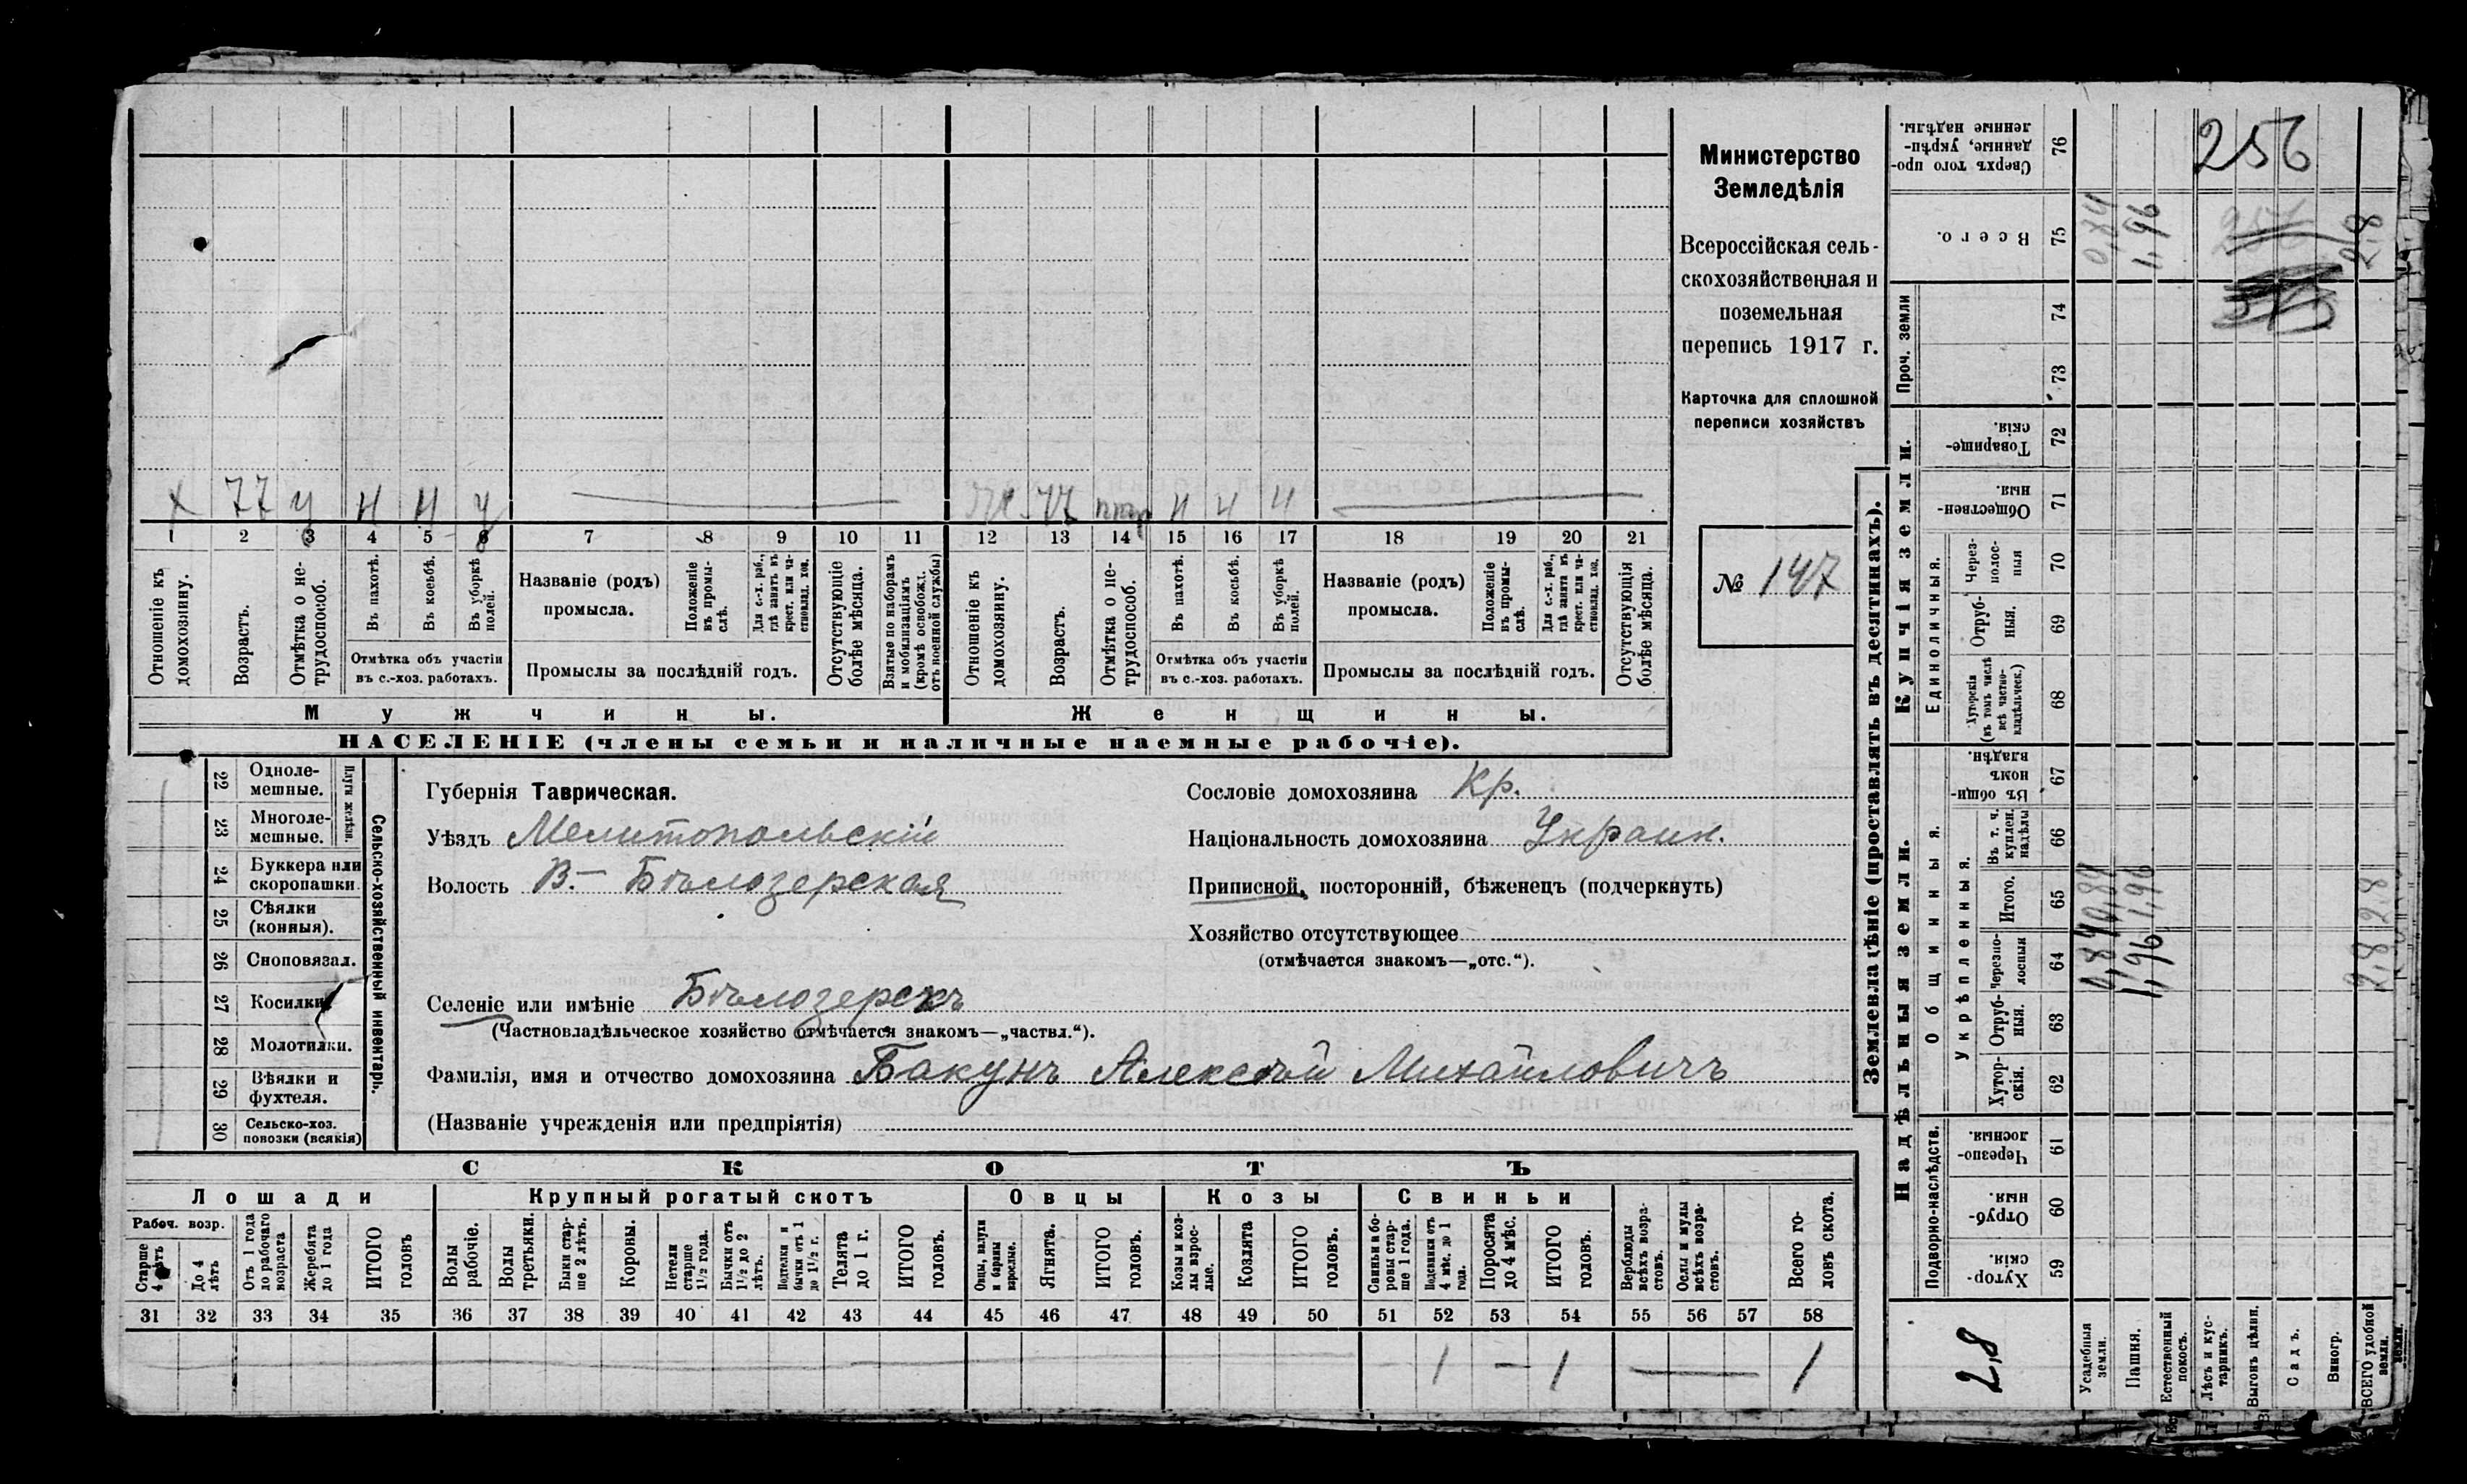 Министерство
Земледѣлія
Всероссійская сель-
скохозяйственная и
поземельная
перепись 1917 г.
Карточка для сплошной
переписи хозяйствъ
№ 147
х 77 у н н у
77 н н н
1 2 3 4 5 6 7 8 9 10 11 12 13 14 15 16 17 18 19 20 21
Отношеніе къ домохозяину.
Возрастъ.
Отмѣтка о не-трудоспособ.
Въ пахотѣ.
Въ косьбѣ.
Въ уборкѣ полей.
Отмѣтка объ участіи
въ с.-хоз. работахъ.
Названіе (родъ)
промысла.
Положеніе въ промы-слѣ.
Для с.-х. раб., гдѣ занятъ въ крест. или ча-стновлад. хоз.
Промыслы за послѣдній годъ.
Отсутствующіе болѣе мѣсяца.
Взятые по наборамъ и мобилизаціямъ (кромѣ освобожд. отъ военной службы)
Отношеніе къ домохозяину.
Возрастъ.
Отмѣтка о не-трудоспособ.
Въ пахотѣ.
Въ косьбѣ.
Въ уборкѣ полей.
Отмѣтка объ участіи
въ с.-хоз. работахъ.
Названіе (родъ)
промысла.
Положеніе въ промы-слѣ.
Для с.-х. раб., гдѣ занята въ крест. или ча-стновлад. хоз.
Промыслы за послѣдній годъ.
Отсутствующія болѣе мѣсяца.
Мужчины.
Женщины.
НАСЕЛЕНІЕ (члены семьи и наличные наемные рабочіе).
22 Одноле-мешные.
23 Многоле-мешные.
Плуги желѣзн.
24 Буккера или скоропашки.
25 Сѣялки (конныя).
26 Сноповязал.
27 Косилки
28 Молотилки.
29 Вѣялки и фухтеля.
30 Сельско-хоз. повозки (всякія)
Сельско-хозяйственный инвентарь.
Губернія Таврическая.
Уѣздъ Мелитопольскій
Волость В.- Бѣлозерская
Сословіе домохозяина Кр.
Національность домохозяина Украин.
Приписной, посторонній, бѣженецъ (подчеркнуть)
Хозяйство отсутствующее
(отмѣчается знакомъ—„отс.“).
Селеніе или имѣніе Бѣлозерскъ
(Частновладѣльческое хозяйство отмѣчается знакомъ—„частвл.“).
Фамилія, имя и отчество домохозяина Бакунъ Алексѣй Михайловичъ
(Названіе учрежденія или предпріятія)
СКОТЪ
Лошади
Крупный рогатый скотъ
Овцы
Козы
Свиньи
Рабоч. возр.
Старше 4 лѣтъ
До 4 лѣтъ
Отъ 1 года до рабочаго возраста
Жеребята до 1 года
ИТОГО головъ
Волы рабочіе.
Волы третьяки.
Быки стар-ше 2 лѣтъ.
Коровы.
Нетели старше 1½ года.
Бычки отъ 1½ до 2 лѣтъ.
Подтелки и бычки отъ 1 до 1½ г.
Телята до 1 г.
ИТОГО головъ.
Овцы, валухи и бараны взрослые.
Ягнята.
ИТОГО головъ.
Козы и коз-лы взрос-лые.
Козлята
ИТОГО головъ.
Свиньи и бо-ровы стар-ше 1 года.
Подсвинки отъ 4 мѣс. до 1 года.
Поросята до 4 мѣс.
ИТОГО головъ.
Верблюды всѣхъ возра-стовъ.
Ослы и мулы всѣхъ возра-стовъ.
Всего го-ловъ скота.
31 32 33 34 35 36 37 38 39 40 41 42 43 44 45 46 47 48 49 50 51 52 53 54 55 56 57 58
1 — 1 — 1
Землевладѣніе (проставлять въ десятинахъ).
Надѣльныя земли.
Купчія земли.
Проч. земли
Подворно-наслѣдств.
Общинныя.
Укрѣпленныя.
Единоличныя.
59 Хутор-скія.
60 Отруб-ныя.
61 Черезпо-лосныя.
62 Хутор-скія.
63 Отруб-ныя.
64 Черезпо-лосныя
65 Итого.
66 Въ т. ч. куплен. надѣлы
67 Въ общи-номъ владѣн.
68 Хуторскія (въ томъ числѣ всѣ частно-владѣльческ.)
69 Отруб-ныя.
70 Через-полос-ныя
71 Обществен-ныя.
72 Товарище-скія.
73
74
75 Всего.
76 Сверхъ того про-данные, укрѣп-ленные надѣлы.
Усадебныя земли.
Пашня.
Естественный покосъ.
Лѣсъ и кус-тарникъ.
Выгонъ цѣлин.
Садъ.
Виногр.
ВСЕГО удобной земли.
2,8
0,84 0,84 0,84
1,96 1,96 1,96
2,8 2,8 2,8
256